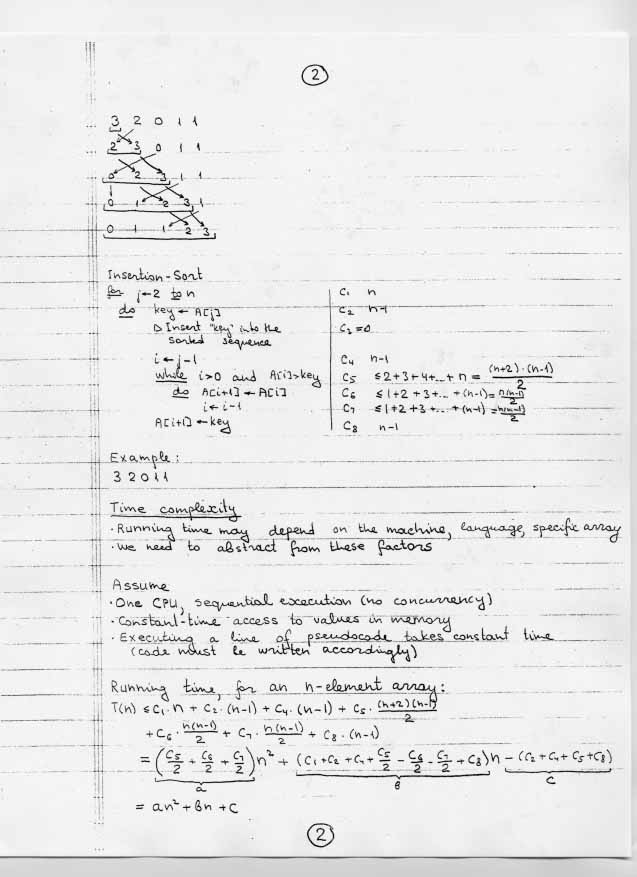 2
3 2 0 1 1
2 3 0 1 1
0 2 3 1 1
0 1 2 3 1
0 1 1 2 3
Insertion-Sort
for j←2 to n C₁ n
do key ← A[j] C₂ n-1
▷ Insert "key" into the C₃=0
sorted sequence
i←j-1 C₄ n-1
while i>0 and A[i]>key C₅ ≤2+3+4+...+n = (n+2)·(n-1)/2
do A[i+1] ← A[i] C₆ ≤1+2+3+...+(n-1)=n(n-1)/2
i←i-1 C₇ ≤1+2+3+...+(n-1)=n(n-1)/2
A[i+1] ←key C₈ n-1
Example:
3 2 0 1 1
Time complexity
·Running time may depend on the machine, language, specific array
·We need to abstract from these factors
Assume
·One CPU, sequential execution (no concurrency)
·Constant-time access to values in memory
·Executing a line of pseudocode takes constant time
(code must be written accordingly)
Running time, for an n-element array:
T(n) ≤C₁·n + C₂·(n-1) + C₄·(n-1) + C₅·(n+2)(n-1)/2
+C₆·n(n-1)/2 + C₇·n(n-1)/2 + C₈·(n-1)
= (C₅/2 + C₆/2 + C₇/2)n² + (C₁+C₂+C₄+C₅/2-C₆/2-C₇/2+C₈)n -(C₂+C₄+C₅+C₈)
a b c
= an²+bn+c
2